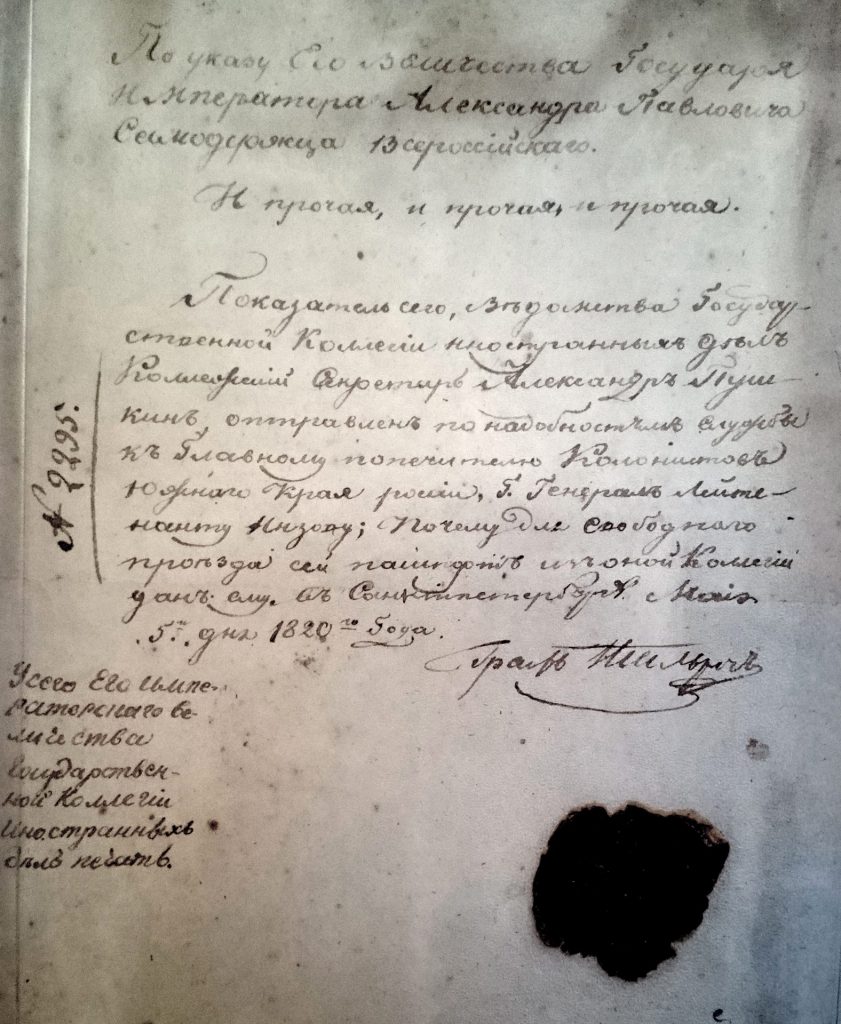 По указу Его Величества Государя
Императора Александра Павловича
Самодержца Всероссійскаго.
И прочая, и прочая, и прочая.
Показатель сего, Вѣдомства Государ-
ственной Коллегіи иностранныхъ дѣлъ
Коллежскій Секретарь Александръ Пуш-
кинъ, отправленъ по надобностямъ службы
къ Главному попечителю Колонистовъ
Южнаго Края россіи, Г. Генералъ Лейте-
нанту Инзову; Почему для свободнаго
проѣзда сей пашпортъ изъ оной Коллегіи
данъ ему. Въ Санктпетербургѣ Маія
5го дня 1820го Года.
Графъ
№ 2295.
У сего Его Импе-
раторскаго ве-
личества
Государствен-
ной Коллегіи
Иностранныхъ
дѣлъ печать.